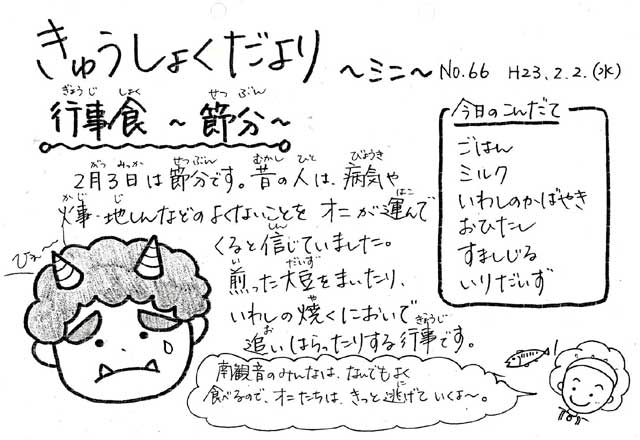 きゅうしょくだより ～ミニ～ No.66 H23.2.2.(水)
ぎょうじ しょく せつ ぶん
行事食 ～ 節分～
今日のこんだて
ごはん
ミルク
いわしのかばやき
おひたし
すましじる
いりだいず
がつ みっか せつぶん むかし ひと びょうき
2月3日は節分です。昔の人は、病気や
かじ じ はこ
火事・地しんなどのよくないことを オニが運んで
しん
くると信じていました。
い だいず
煎った大豆をまいたり、
や
いわしの焼くにおいで
お ぎょうじ
追いはらったりする行事です。
ひぇ～
南観音のみんなは、なんでもよく
に
食べるので、オニたちは、きっと逃げていくよ～。